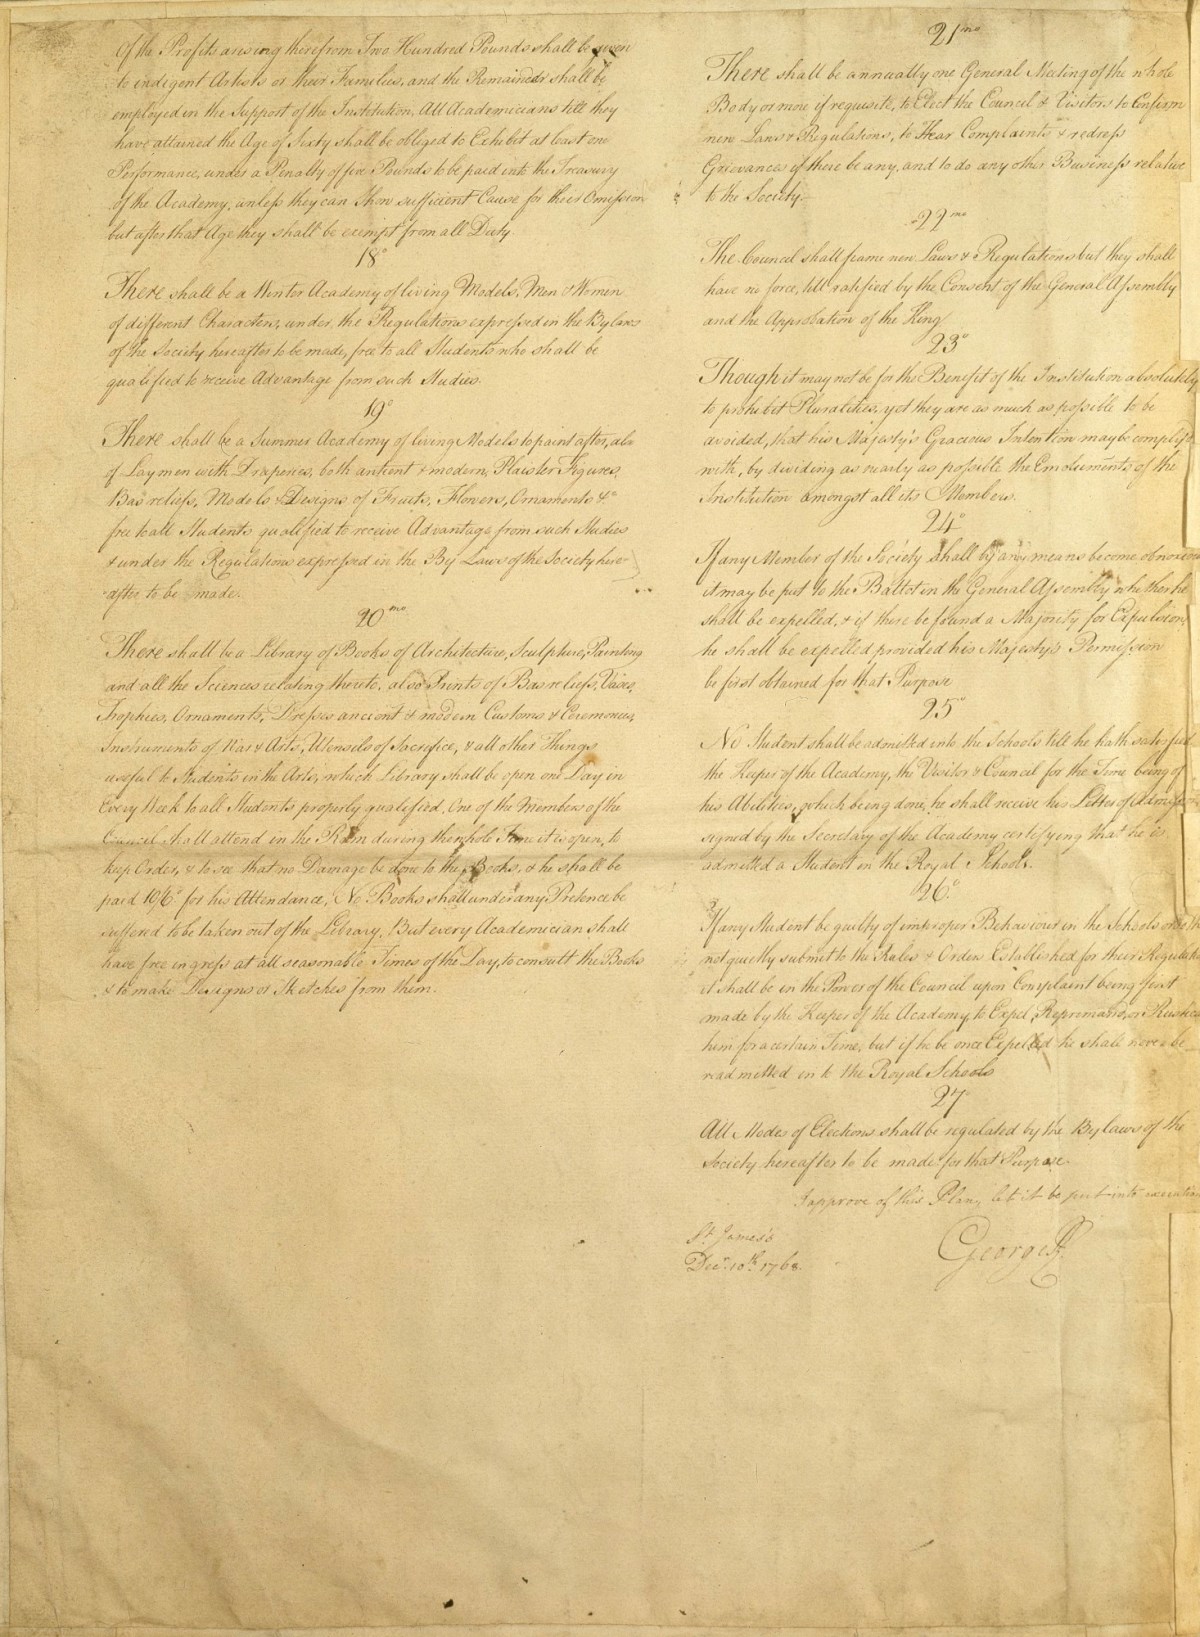 Of the Profits arising therefrom Two Hundred Pounds shall be given
to indigent Artists or their Families, and the Remainder shall be
employed in the Support of the Institution. All Academicians till they
have attained the Age of Sixty shall be obliged to Exhibit at least one
Performance, under a Penalty of five Pounds to be paid into the Treasury
of the Academy, unless they can Shew sufficient Cause for their Omission
but after that Age they shall be exempt from all Duty.
18o
There shall be a Winter Academy of living Models, Men & Women
of different Characters, under the Regulations expressed in the Bylaws
of the Society hereafter to be made, free to all Students who shall be
qualified to receive Advantage from such Studies.
19o
There shall be a Summer Academy of living Models to paint after, also
of Laymen with Draperies, both antient & modern, Plaister Figures,
Bas reliefs, Models & Designs of Fruits, Flowers, Ornaments &c
free to all Students qualified to receive Advantage from such Studies
& under the Regulations expressed in the By Laws of the Society here-
after to be made.
20mo
There shall be a Library of Books of Architecture, Sculpture, Painting
and all the Sciences relating thereto, also Prints of Bas reliefs, Vases,
Trophies, Ornaments, Dresses ancient & modern Customs & Ceremonies,
Instruments of War & Arts, Utensils of Sacrifice, & all other Things
useful to Students in the Arts; which Library shall be open one Day in
Every Week to all Students properly qualified. One of the Members of the
Council shall attend in the Room during the whole Time it is open, to
keep Order, & to see that no Damage be done to the Books, & he shall be
paid 10/6d for his Attendance, No Books shall under any Pretence be
suffered to be taken out of the Library. But every Academician shall
have free ingress at all seasonable Times of the Day, to consult the Books
& to make Designs or Sketches from them.
21mo
There shall be annually one General Meeting of the whole
Body or more if requisite, to Elect the Council & Visitors to Confirm
new Laws & Regulations, to Hear Complaints & redress
Grievances if there be any, and to do any other Business relative
to the Society.
22mo
The Council shall frame new Laws & Regulations but they shall
have no force, till ratified by the Consent of the General Assembly
and the Approbation of the King
23o
Though it may not be for the Benefit of the Institution absolutely
to prohibit Pluralities, yet they are as much as possible to be
avoided, that his Majesty's Gracious Intention may be complied
with, by dividing as nearly as possible the Emoluments of the
Institution amongst all its Members.
24o
If any Member of the Society shall by any means become obnoxious
it may be put to the Ballot in the General Assembly whether he
shall be expelled, & if there be found a Majority for Expulsion
he shall be expelled provided his Majesty's Permission
be first obtained for that Purpose
25o
No Student shall be admitted into the Schools till he hath satisfied
the Keeper of the Academy, the Visitor & Council for the Time being of
his Abilities, which being done, he shall receive his Letter of
signed by the Secretary of the Academy certifying that he is
admitted a Student in the Royal Schools.
26o
If any Student be guilty of improper Behaviour in the Schools or
not quietly submit to the Rules & Orders Established for their
it shall be in the Power of the Council upon Complaint being first
made by the Keeper of the Academy, to Expel, Reprimand, or
him for a certain Time, but if he be once Expelled he shall never be
readmitted in to the Royal Schools
27
All Modes of Elections shall be regulated by the Bylaws of the
Society hereafter to be made for that Purpose.
I approve of this Plan, let it be put into execution
St. James's
Decr. 10th. 1768.
George R.